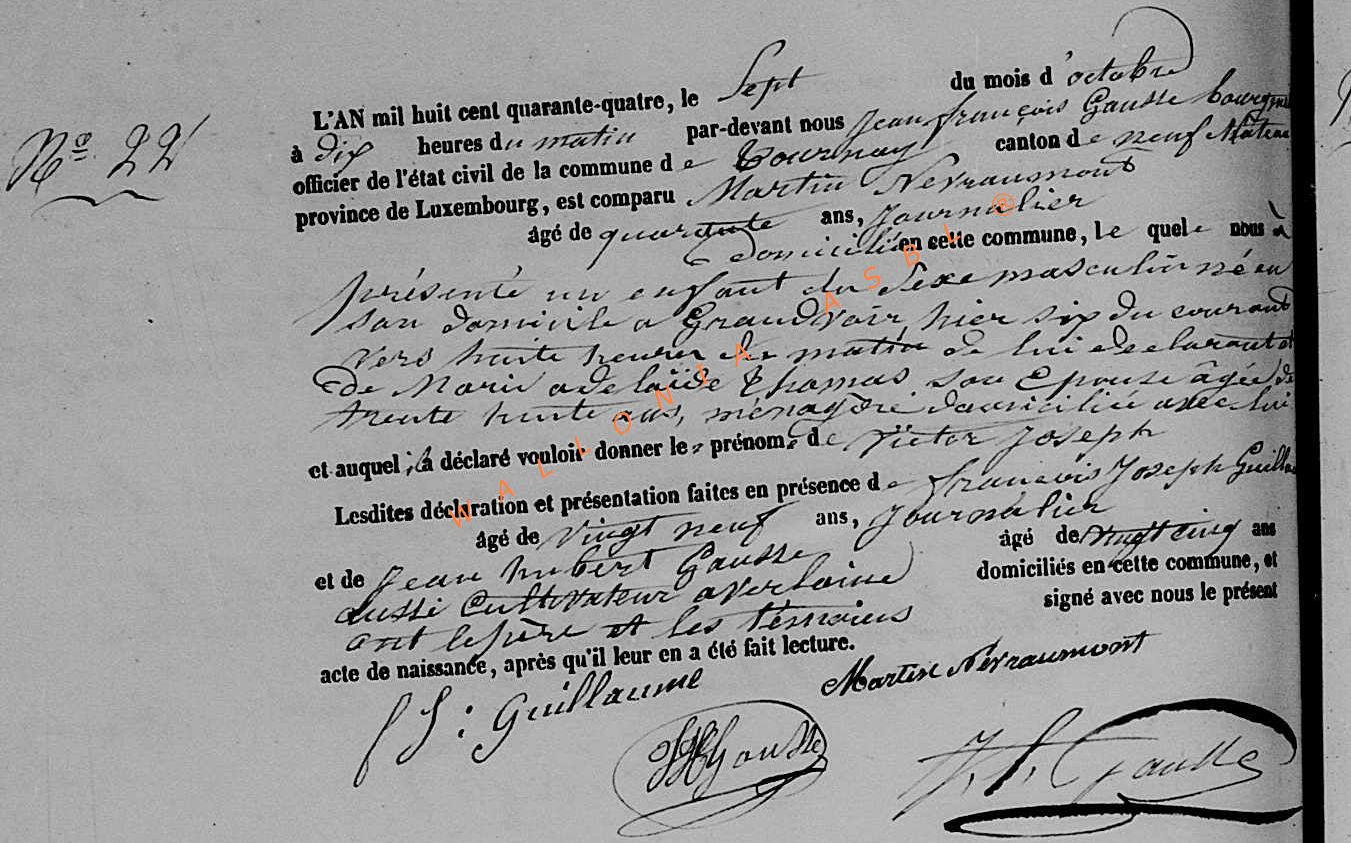 L'AN mil huit cent quarante-quatre, le Sept du mois d'octobre
No 22
à dix heures du matin par-devant nous Jean françois Gausse bourgm
officier de l'état civil de la commune de Tournay canton de neuf château
province de Luxembourg, est comparu Martin Nevraumont
âgé de quarante ans, Journalier
domicilié en cette commune, le quel nous à
présenté un enfant du Sexe masculin né en
son domicile a Grandvoir, hier six du courant
vers huite heures du matin de lui declarant et
de Marie adelaïde Thomas son Epouse âgée de
trente huite ans, ménagère domiciliée avec lui
et auquel il a déclaré vouloir donner les prénoms de Victor Joseph
Lesdites déclaration et présentation faites en présence de françois Joseph Guilla
âgé de vingt neuf ans, Journalier
et de Jean hubert Gausse âgé de vingt cinq ans
aussi Cultivateur a verlaine domiciliés en cette commune, et
ont le père et les témoins signé avec nous le présent
acte de naissance, après qu'il leur en a été fait lecture.
Martin Nevraumont
f J: Guillaume
JH Gausse
J. f. Gausse
WALLONIA ASBL ©